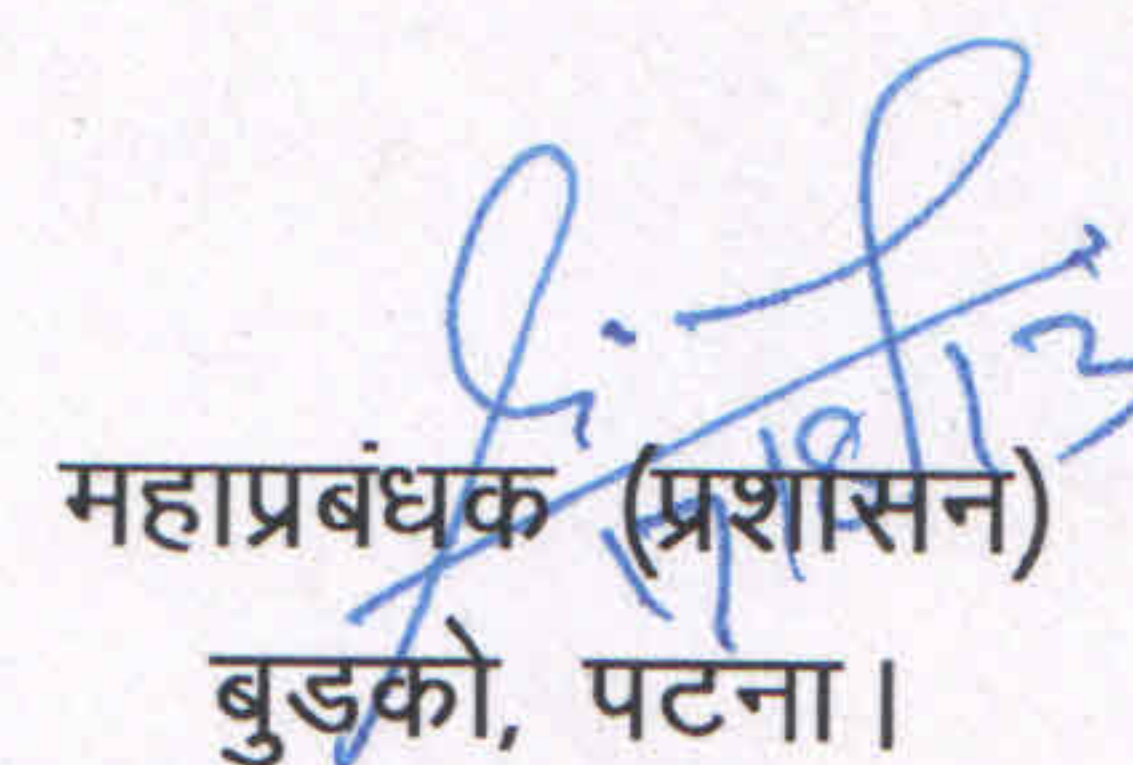 महाप्रबंधक (प्रशासन)
बुडको, पटना।